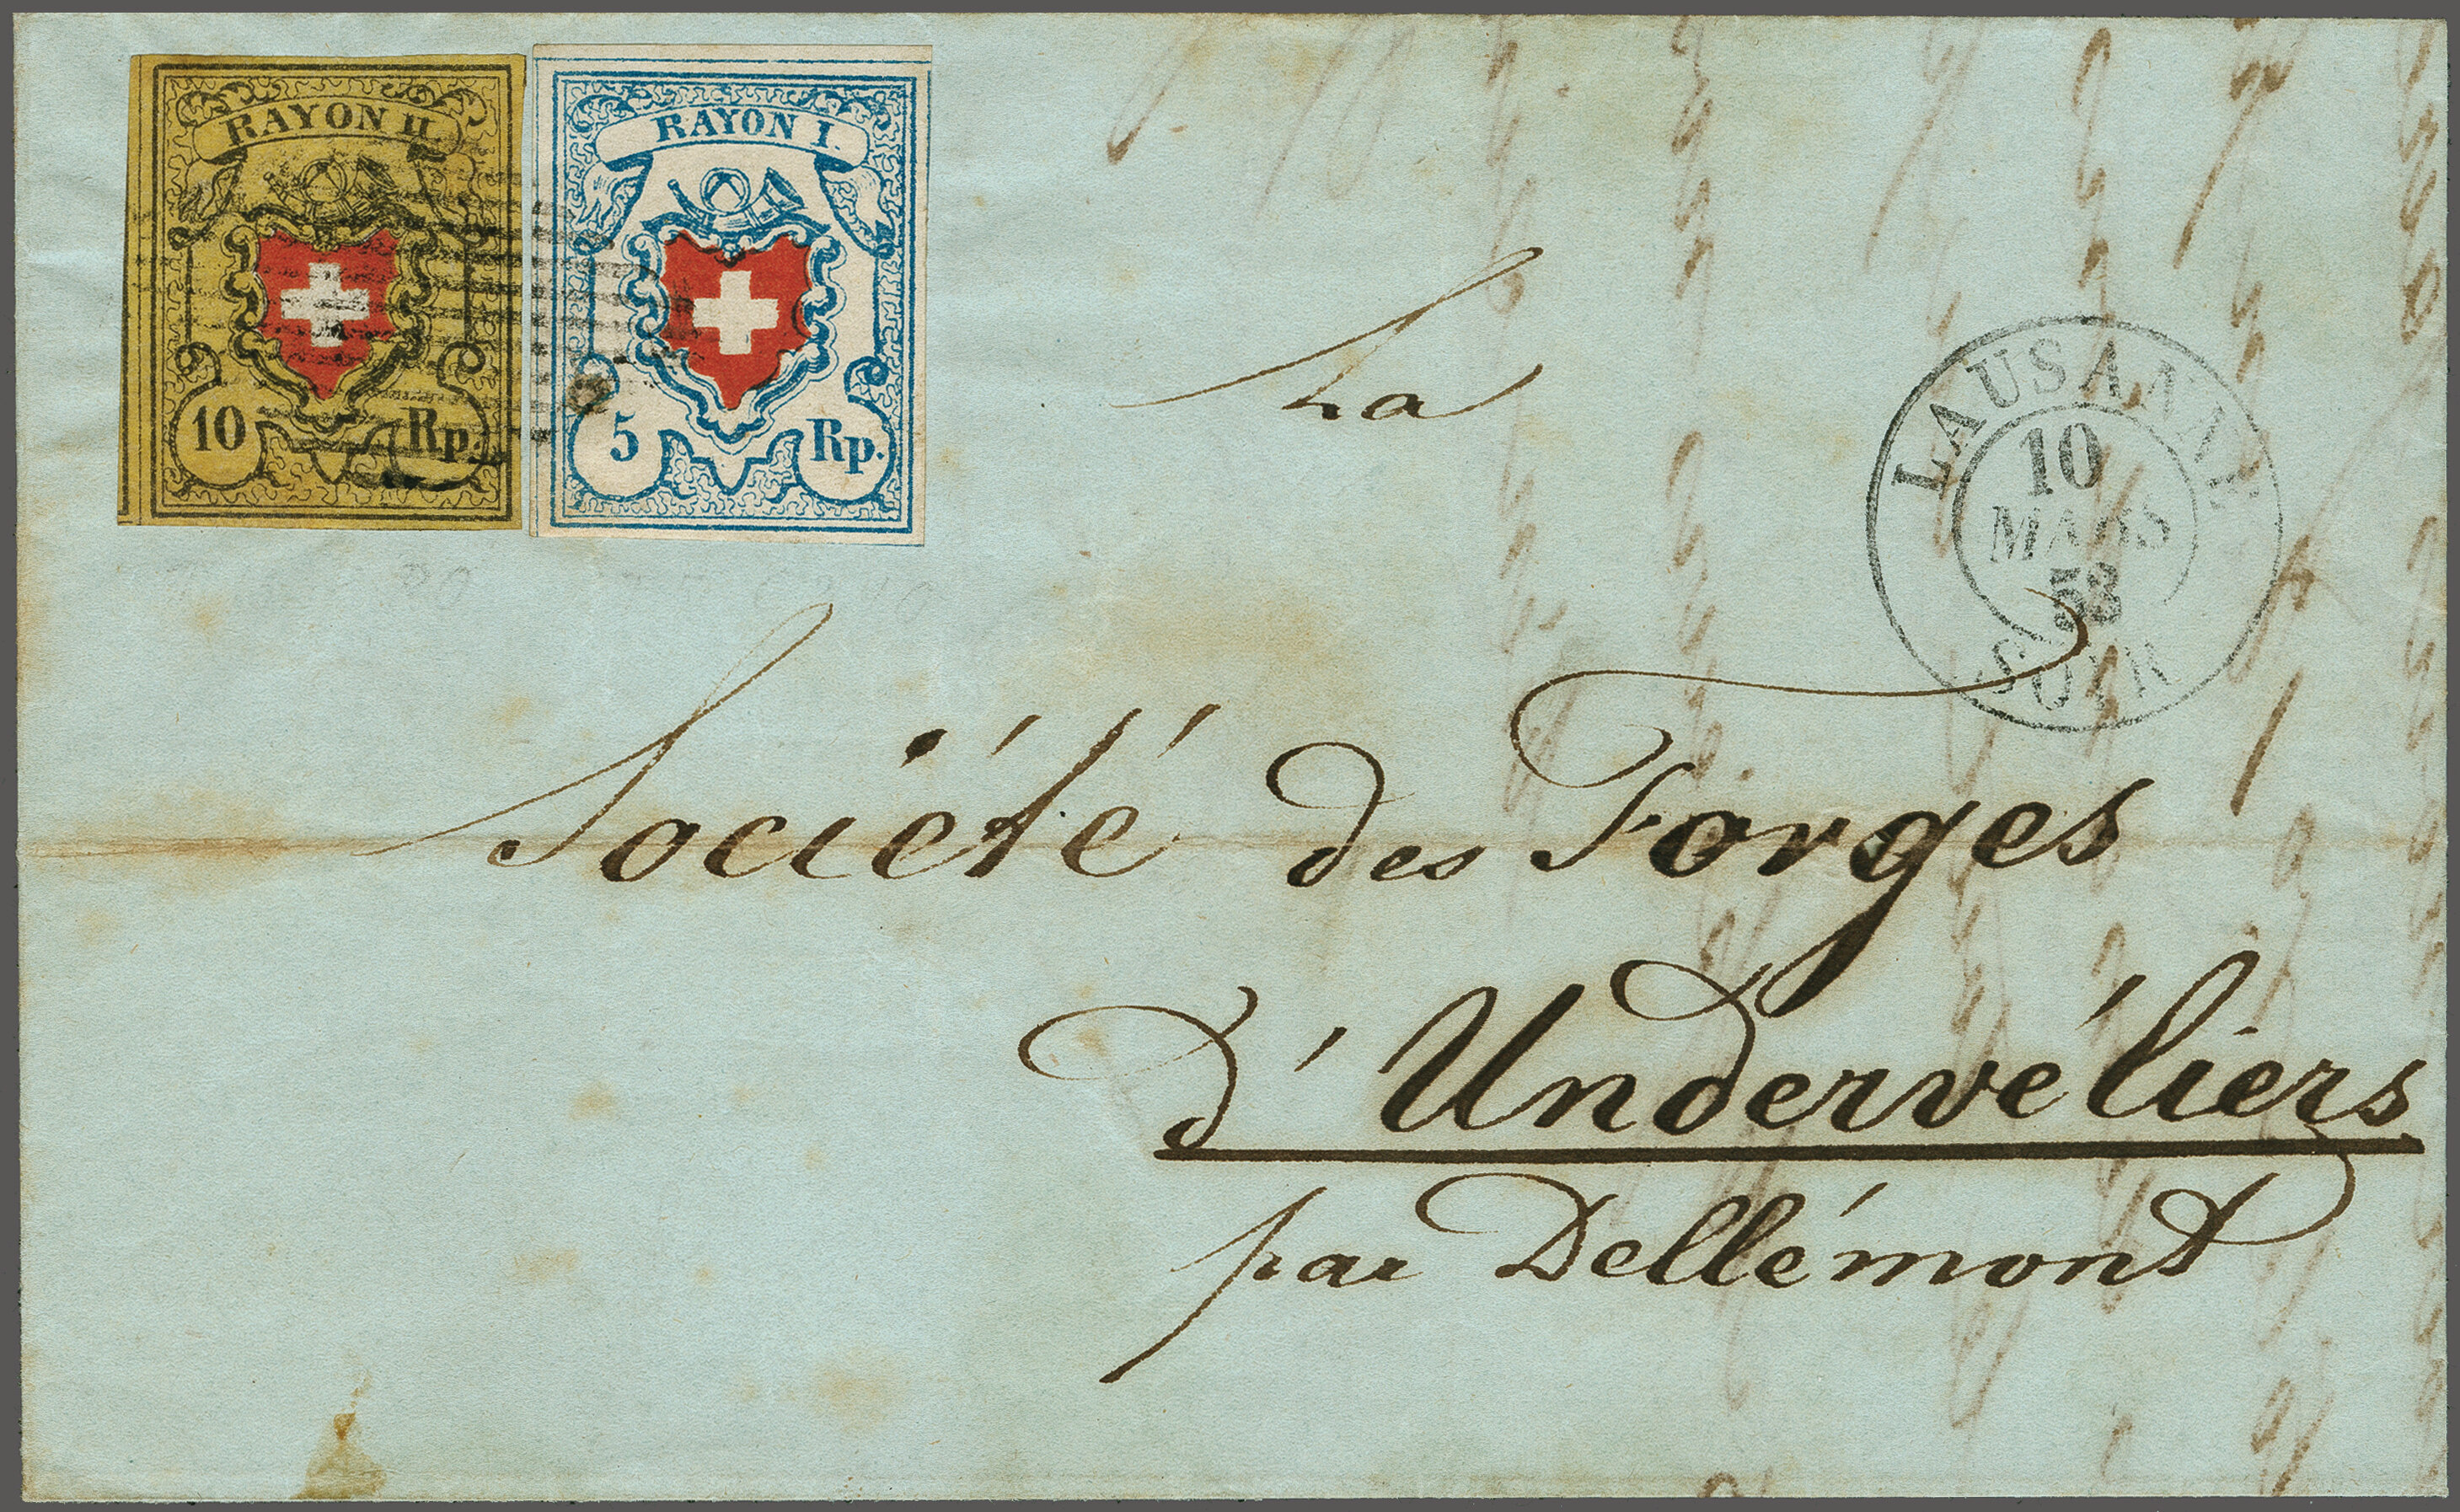 RAYON II.
10 Rp.
RAYON I.
5 Rp.
LAUSANNE
10
MARS
53
SOIR
La
Société des Forges
d'Undervéliers
par Dellémont